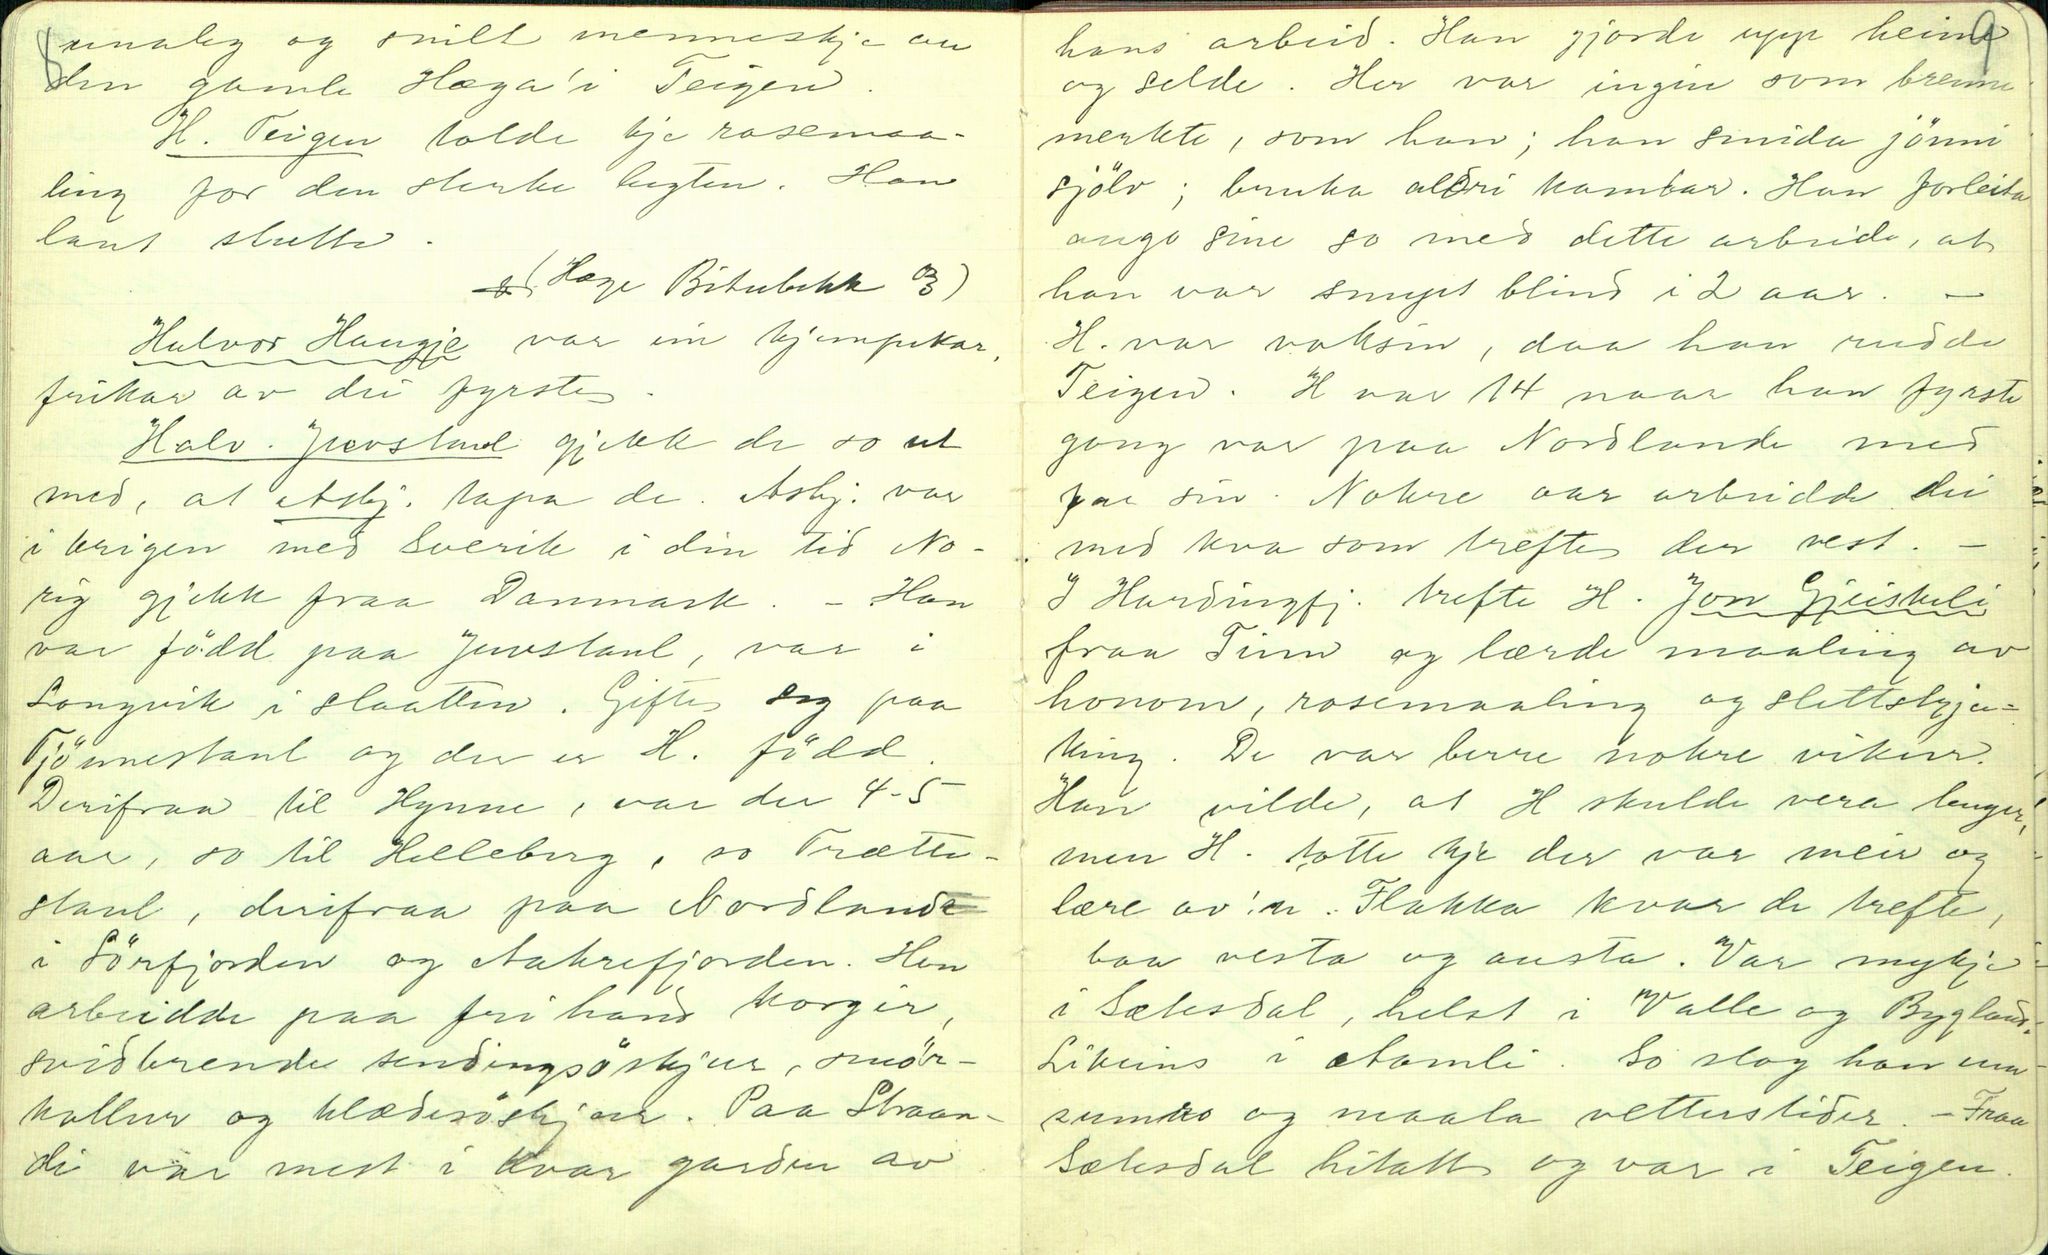 8
unaleg og snilt menneskje en
den gamle Hæga'i Teigen.
H. Teigen tolde kje rosemaa-
ling for den sterke lugten. Han
laut slutte.
(Hæge Bitubekk B)
Halvor Haugje var ein kjempekar,
frikar av dei fyrste.
Halv. Juvstaul gjekk de so ut
med, at Asbj. tapa de. Asbj. var
i krigen med Sverik i din tid No-
rig gjekk fraa Danmark. - Han
var född paa Juvstaul, var i
Songvik i slaatten. Gifte seg paa
Tjönnestaul og der er H. född.
Derifraa til Hynne, var der 4-5
aar, so til Helleberg, so Trætte-
staul, derifraa paa Nordlande
i Sörfjorden og Aakrefjorden. Han
arbeidde paa fri hand korger,
svidbrende sendingsöskjur, smör-
kollur og klædesöskjur. Paa Straan-
di var mest i kvar garden av
9
hans arbeid. Han gjorde upp heime
og selde. Her var ingin som brenne-
merkte, som han; han smida jönni
sjölv; bruka aldri kambar. Han forleita
augo sine so med dette arbeide, at
han var smugt blind i 2 aar. -
H. var voksin, daa han rudde
Teigen. H var 14 naar han fyrste
gong var paa Nordlande med
far sin. Nokre aar arbeidde dei
med kva som trefte der vest. -
I Hardingfj. trefte H. Jon Gjeisteli
fraa Tinn og lærde maaling av
honom, rosemaaling og slettstyja-
king. De var berre nokre vikur.
Han vilde, at H skulde vera lenger,
men H. totte kje der var meir og
lære av'n. Flakka kvar de trefte,
baa vesta og austa. Var mykje
i Sætesdal, helst i Valle og Bygland.
Likeins i Aamli. So slog han um
sumro og maala vetterstider. - Fraa
Sætesdal hitatt og var i Teigen.